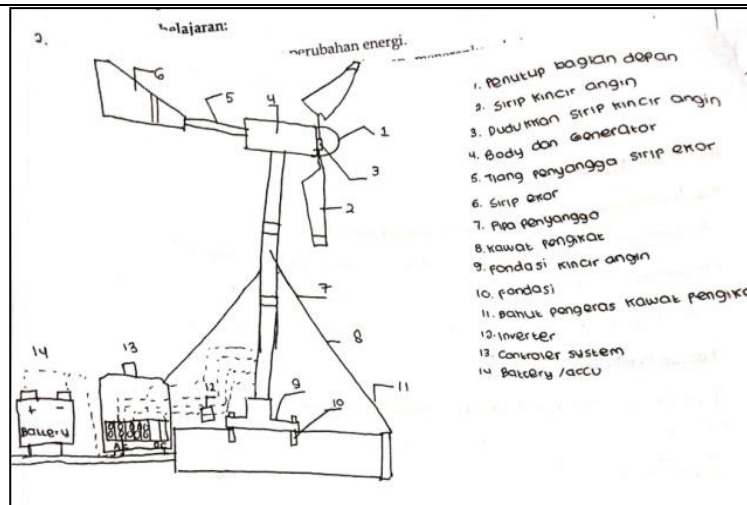 2.
belajaran:
perubahan energi.
1. Penutup bagian depan
2. Sirip kincir angin
3. Dudukkan sirip kincir angin
4. Body dan Generator
5. Tiang penyangga sirip ekor
6. Sirip ekor
7. Pipa penyanggo
8. Kawat pengikat
9. Fondasi kincir angin
10. Fondasi
11. Bahut pengeras kawat pengika
12. Inverter
13. Controler system
14 Battery /accu
6
5
4
1
3
2
7
8
14
13
12
9
10
11
+ -
Battery